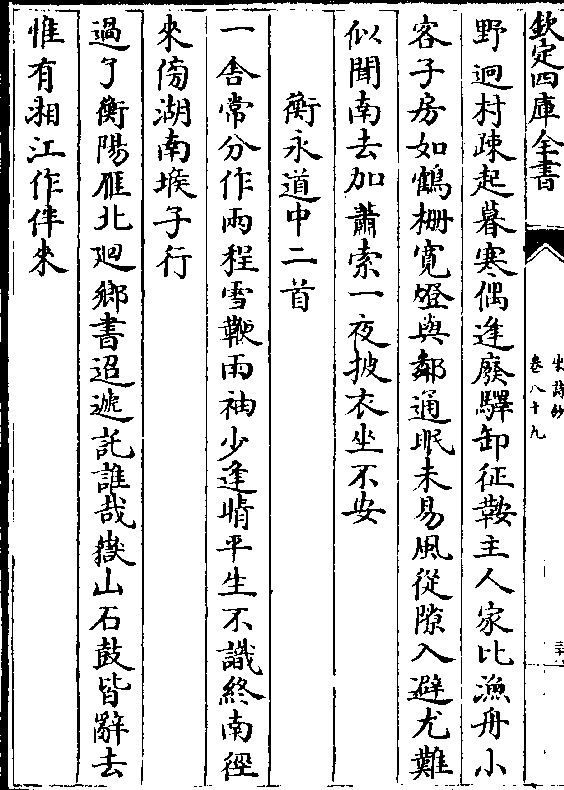 欽定四庫全書
宋詩鈔
卷八十九
野迥村疎起暮寒偶逢廢驛卸征鞍主人家比漁舟小
客子房如鶴柵寛燈與鄰通眠未易風從隙入避尤難
似聞南去加蕭索一夜披衣坐不安
衡永道中二首
一舍常分作兩程雪鞭雨袖少逢晴平生不識終南徑
來傍湖南堠子行
過了衡陽雁北廻鄉書迢遞託誰哉嶽山石鼓皆辭去
惟有湘江作伴來